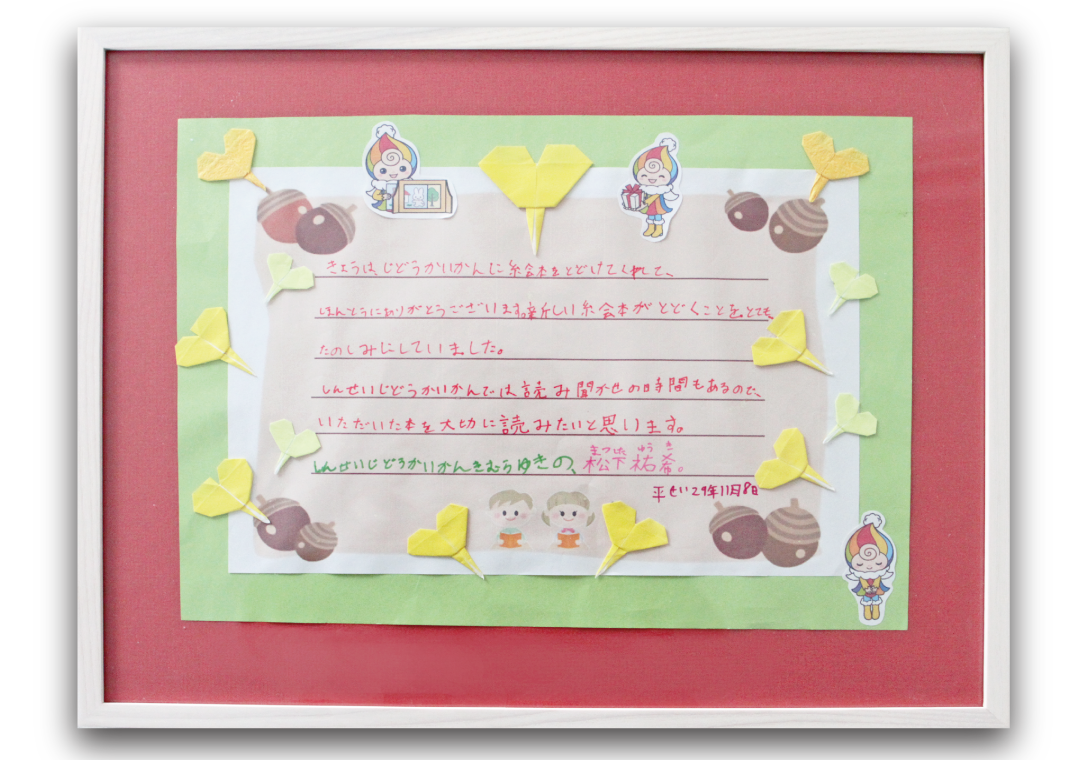 きょうは、じどうかいかんに絵本をとどけてくれて、
ほんとうにありがとうございます。新しい絵本がとどくことを、とても
たのしみにしていました。
しんせいじどうかいかんでは読み聞かせの時間もあるので、
いただいた本を大切に読みたいと思います。
まつした ゆうき
しんせいじどうかいかんきむらゆきの、松下祐希。
平せい29年11月8日